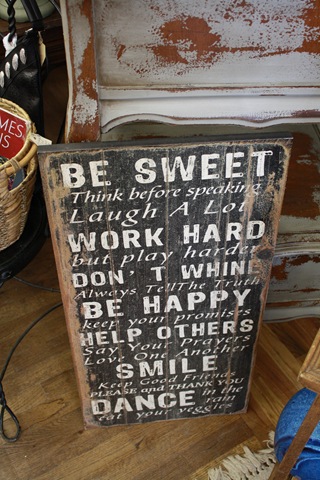 BE SWEET
Think before speaking
Laugh A Lot
WORK HARD
but play harder
DON'T WHINE
Always Tell The Truth
BE HAPPY
keep your promises
HELP OTHERS
Say Your Prayers
Love One Another
SMILE
Keep Good Friends
PLEASE and THANK YOU
DANCE in the rain
eat your veggies